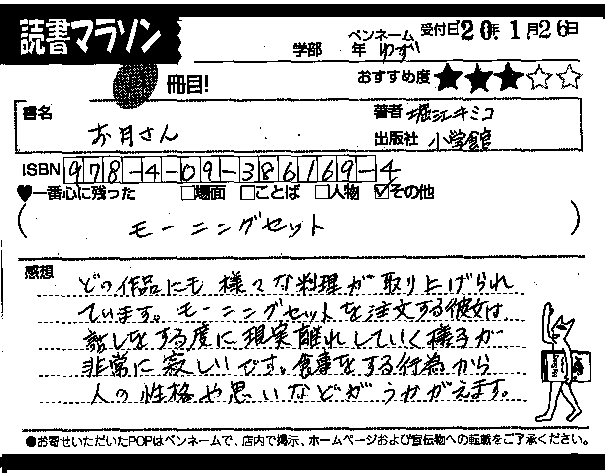 読書マラソン
学部 年 ペンネーム ゆず 受付日'20年1月26日
冊目! おすすめ度★★★☆☆
書名 お月さん
著者 堀江キミコ
出版社 小学館
ISBN 978-4-09-386169-4
♥一番心に残った □場面 □ことば □人物 ☑その他
(モーニングセット)
感想 どの作品にも様々な料理が取り上げられ
ています。モーニングセットを注文する彼女は
話しをする度に現実離れしていく様子が
非常に寂しいです。食事をする行為から
人の性格や思いなどがうかがえます。
●お寄せいただいたPOPはペンネームで、店内で掲示、ホームページおよび宣伝物への転載をご了承ください。